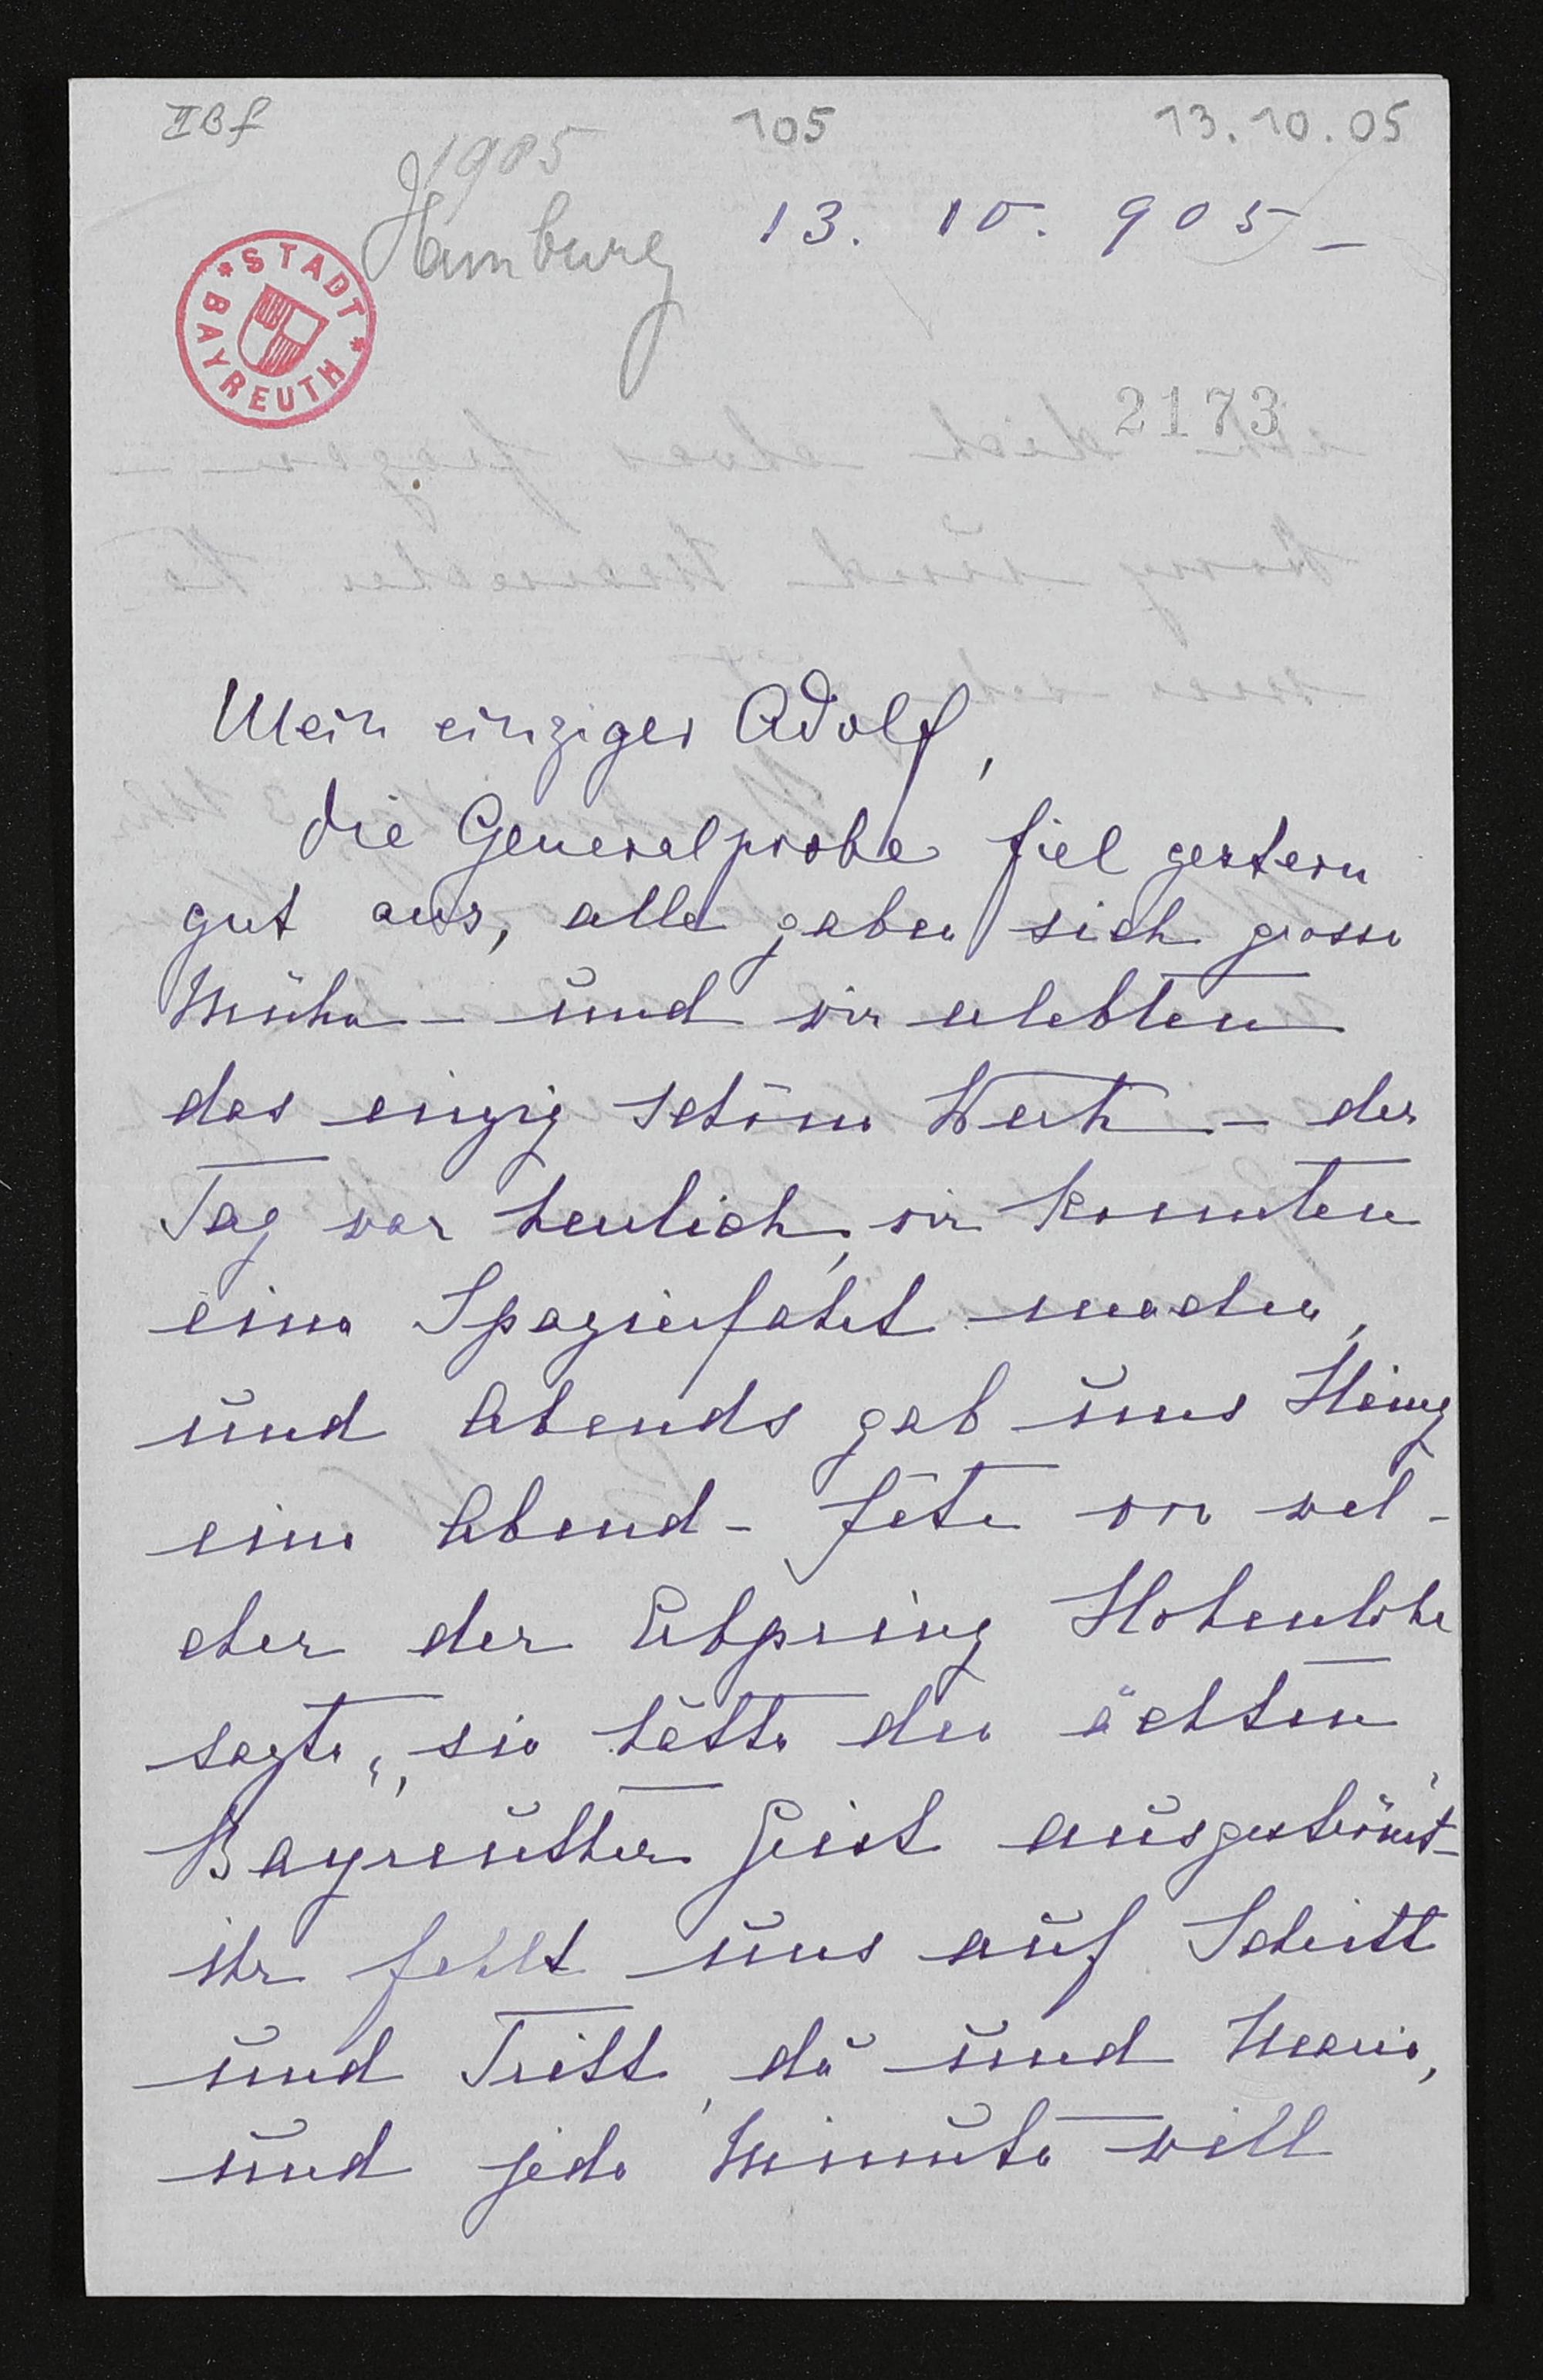 IIBf 105 13.10.05
1905
Hamburg 13. 10. 905 –
* STADT * BAYREUTH
2173
Mein einziger Adolf,
die Generalprobe fiel gestern
gut aus, alle gaben sich grosse
Mühe – und wir erlebten
das einzig schöne Werk – der
Tag war herrlich, wir konnten
eine Spazierfahrt machen,
und Abends gab uns
eine Abend-Fête von wel-
cher der Erbprinz Hohenlohe
sagte, „sie hätte den ächten
Bayreuther Geist ausgeströmt –
ihr fehlt uns auf Schritt
und Tritt, du und Maria,
und jede Minute will